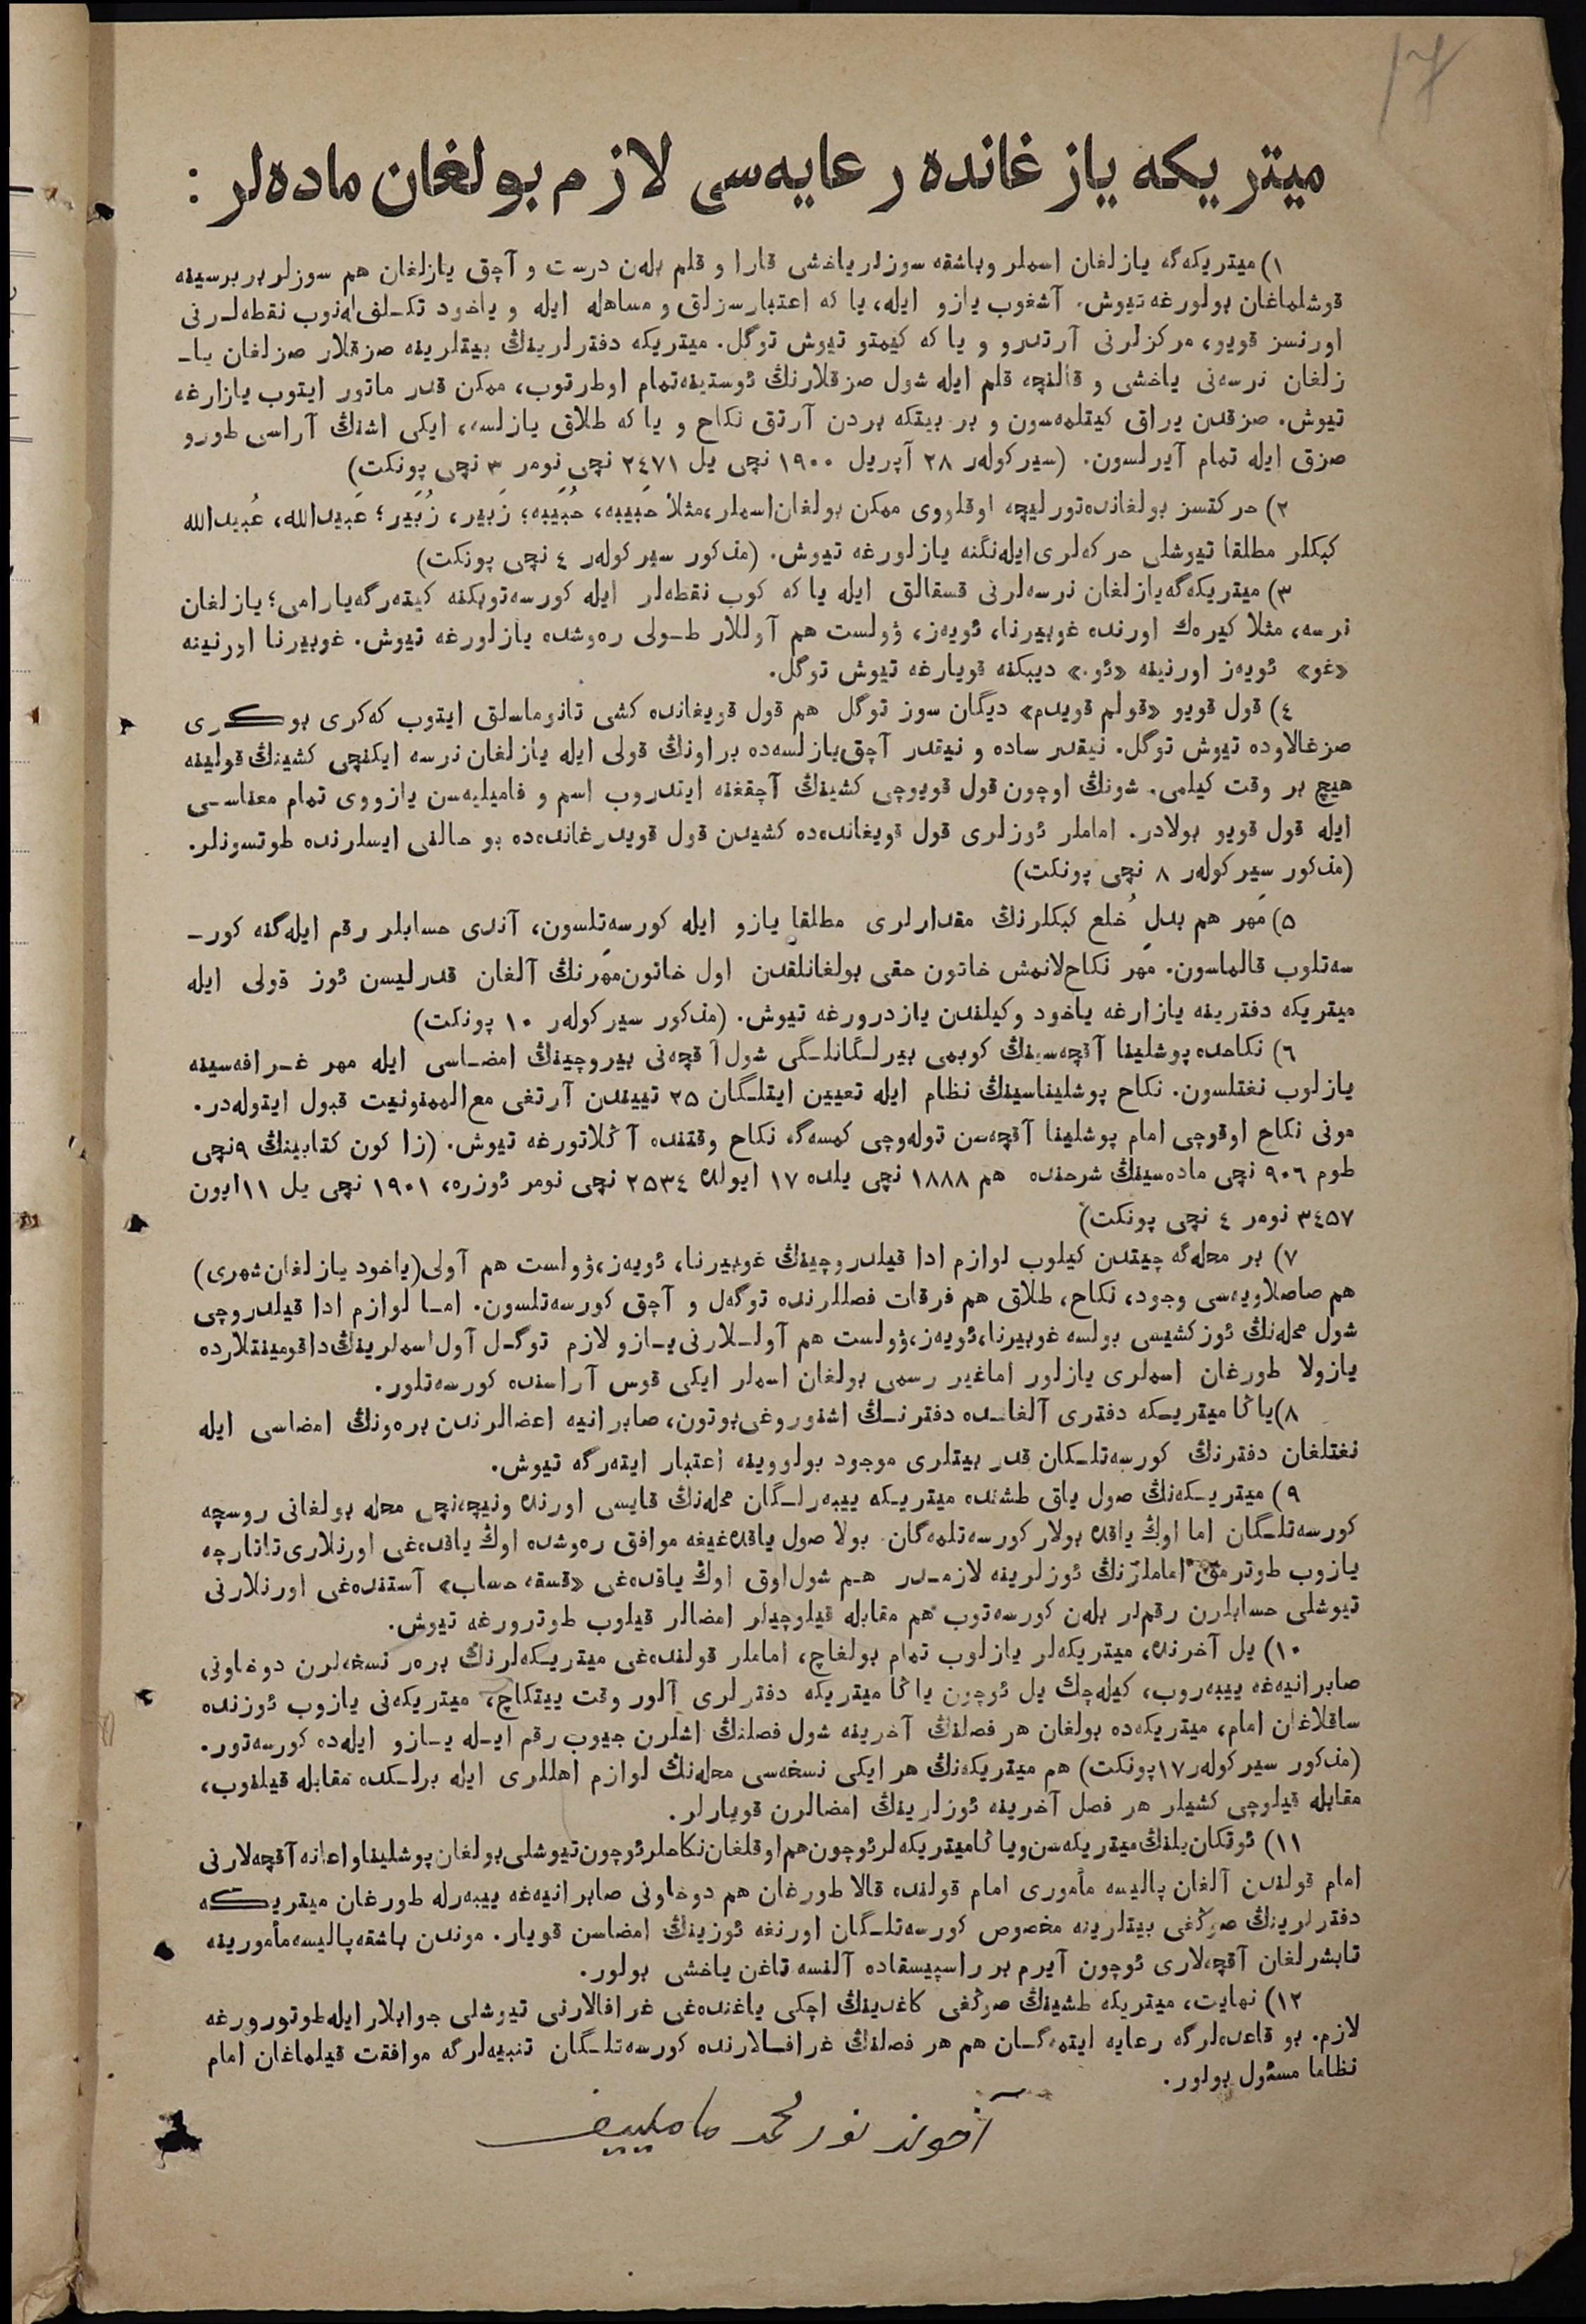 17
میتریکه یازغانده رعایه‌سی لازم بولغان ماده‌لر :
۱) میتریکه‌گه یازلغان اسملر وباشقه سوزلر یاخشی قارا و قلم بله‌ن درست و آچق یازلغان هم سوزلر بر برسینه
قوشلماغان بولورغه تیوش. آشغوب یازو ایله، یا که اعتبارسزلق و مساهله ایله و یاخود تکلف‌له‌نوب نقطه‌لرنی
اورنسز قویو، مرکزلرنی آرتدرو و یا که کیمتو تیوش توگل. میتریکه دفترلرینڭ بیتلرینه صزقلار صزلغان یا‌ـ
زلغان نرسه‌نی یاخشی و قالنچه قلم ایله شول صزقلارنڭ ئوستینه‌تمام اوطرتوب، ممکن قدر ماتور ایتوب یازارغه
تیوش. صزقدن یراق کیتلمه‌سون و بر بیتکه بردن آرتق نکاح و یا که طلاق یازلسه، ایکی اشنڭ آراسی طورو
صزق ایله تمام آیرلسون. (سیرکوله‌ر ۲۸ آپریل ۱۹۰۰ نچی یل ۲٤۷۱ نچی نومر ۳ نچی پونکت)
۲) حرکتسز بولغانده‌تورلیچه اوقلووی ممکن بولغان‌اسملر،مثلاً حَبیبه، حُبَیبه؛ زَبیر، زُبَیر؛ عَبیدالله، عُبیدالله
کبکلر مطلقا تیوشلی حرکه‌لری‌ایله‌نگنه یازلورغه تیوش. (مذکور سیرکوله‌ر ٤ نچی پونکت)
۳) میتریکه‌گه‌یازلغان نرسه‌لرنی قسقالق ایله یا که کوب نقطه‌لر ایله کورسه‌توبکنه کیته‌رگه‌یارامی؛ یازلغان
نرسه، مثلا کیره‌ك اورنده غوبیرنا، ئویه‌ز، ۋولست هم آوللار طـولی ره‌وشده یازلورغه تیوش. غوبیرنا اورنینه
«غو» ئویه‌ز اورنینه «ئو.» دیبکنه قویارغه تیوش توگل.
٤) قول قویو «قولم قویدم» دیگان سوز توگل هم قول قویغانده کشی تانوماسلق ایتوب که‌کری بوکری
صزغالاوده تیوش توگل. نیقدر ساده و نیقدر آچق‌یازلسه‌ده براونڭ قولی ایله یازلغان نرسه ایکنچی کشینڭ قولینه
هیچ بر وقت کیلمی. شونڭ اوچون قول قویوچی کشینڭ آچقغنه ایتدروب اسم و فامیلیه‌سن یازووی تمام معناسی
ایله قول قویو بولادر. اماملر ئوزلری قول قویغانده‌ده کشیدن قول قویدرغانده‌ده بو حالنی ایسلرنده طوتسونلر.
(مذکور سیرکوله‌ر ۸ نچی پونکت)
۵) مَهر هم بدلِ خُلع کبکلرنڭ مقدارلری مطلقا یازو ایله کورسه‌تلسون، آندی حسابلر رقم ایله‌گنه کورـ
سه‌تلوب قالماسون. مَهر نکاح‌لانمش خاتون حقی بولغانلقدن اول خاتون‌مَهرنڭ آلغان قدرلیسن ئوز قولی ایله
میتریکه دفترینه یازارغه یاخود وکیلندن یازدرورغه تیوش. (مذکور سیرکوله‌ر ۱۰ پونکت)
٦) نکاحده پوشلینا آقچه‌سینڭ کوبمی بیرلگانلگی شول آقچه‌نی بیروچینڭ امضاسی ایله مهر غرافه‌سینه
یازلوب نغتلسون. نکاح پوشلیناسینڭ نظام ایله تعیین ایتلگان ۲۵ تییندن آرتغی مع‌الممنونیت قبول ایتوله‌در.
مونی نکاح اوقوچی امام پوشلینا آقچه‌سن توله‌وچی کمسه‌گه نکاح وقتنده آڭلاتورغه تیوش. (زاکون کتابینڭ ۹نچی
طوم ۹۰٦ نچی ماده‌سینڭ شرحنده هم ۱۸۸۸ نچی یلده ۱۷ ایولده ۲۵۳٤ نچی نومر ئوزره، ۱۹۰۱ نچی یل ۱۱ایون
۳٤۵۷ نومر ٤ نچی پونکت)
۷) بر محله‌گه چیتدن کیلوب لوازم ادا قیلدروچینڭ غوبیرنا، ئویه‌ز،ۋولست هم آولی(یاخود یازلغان‌شهری)
هم صاصلاویه‌سی وجود، نکاح، طلاق هم فرقات فصللرنده توگه‌ل و آچق کورسه‌تلسون. امـا لوازم ادا قیلدروچی
شول محله‌نڭ ئوز کشیسی بولسه غوبیرنا،ئویه‌ز،ۋولست هم آولـلارنی یـازو لازم توگـل آول‌اسملرینڭ‌داقومینتلارده
یازولا طورغان اسملری یازلور اماغیر رسمی بولغان اسملر ایکی قوس آراسنده کورسه‌تلور.
۸)یاڭا میتریکه دفتری آلغانده دفترنڭ اشنوروغی‌بوتون، صابرانیه اعضالرندن بره‌ونڭ امضاسی ایله
نغتلغان دفترنڭ کورسه‌تلگان قدر بیتلری موجود بولووینه اعتبار ایته‌رگه تیوش.
۹) میتریکه‌نڭ صول یاق طشنده میتریکه ییبه‌رلگان محله‌نڭ قایسی اورنده ونیچه‌نچی محله بولغانی روسچه
کورسه‌تلگان اما اوڭ یاقده بولار کورسه‌تلمه‌گان. بولا صول یاقده‌غیغه موافق ره‌وشده اوڭ یاقده‌غی اورنلاری‌تاتارچه
یازوب طوترمق اماملرنڭ ئوزلرینه لازمـدر هم شول‌اوق اوڭ یاقده‌غی «قسقه حساب» آستنده‌غی اورنلارنی
تیوشلی حسابلرن رقملر بله‌ن کورسه‌توب هم مقابله قیلوچیلر امضالر قیلوب طوترورغه تیوش.
۱۰) یل آخرنده، میتریکه‌لر یازلوب تمام بولغاچ، اماملر قولنده‌غی میتریکه‌لرنڭ بره‌ر نسخه‌لرن دوخاونی
صابرانیه‌غه ییبه‌روب، کیله‌چك یل ئوچون یاڭا میتریکه دفترلری آلور وقت ییتکاچ، میتریکه‌نی یازوب ئوزنده
ساقلاغان امام، میتریکه‌ده بولغان هر فصلنڭ آخرینه شول فصلنڭ اشلرن جیوب رقم ایـله یـازو ایله‌ده کورسه‌تور.
(مذکور سیرکوله‌ر ۱۷پونکت) هم میتریکه‌نڭ هر ایکی نسخه‌سی محله‌نڭ لوازم اهللری ایله برلکده مقابله قیلنوب،
مقابله قیلوچی کشیلر هر فصل آخرینه ئوزلرینڭ امضالرن قویارلر.
۱۱) ئوتکان‌یلنڭ‌میتریکه‌سن‌ویاڭامیتریکه‌لرئوچون‌هم‌اوقلغان‌نکاحلرئوچون‌تیوشلی‌بولغان‌پوشلیناواعانه‌آقچه‌لارنی
امام قولندن آلغان پالیسه مأموری امام قولنده قالا طورغان هم دوخاونی صابرانیه‌غه ییبه‌رله طورغان میتریکه
دفترلرینڭ صوڭغی بیتلرینه مخصوص کورسه‌تلگان اورنغه ئوزینڭ امضاسن قویار. موندن باشقه‌پالیسه‌مأمورینه
تابشرلغان آقچه‌لاری ئوچون آیرم بر راسپیسقاده آلنسه تاغن یاخشی بولور.
۱۲) نهایت، میتریکه طشینڭ صوڭغی کاغدینڭ اچکی یاغنده‌غی غرافالارنی تیوشلی جوابلار ایله‌طوتورورغه
لازم. بو قاعده‌لرگه رعایه ایتمه‌گان هم هر فصلنڭ غرافالارنده کورسه‌تلگان تنبیه‌لرگه موافقت قیلماغان امام
نظاما مسئول بولور.
آخوند نور محمد ماملییف